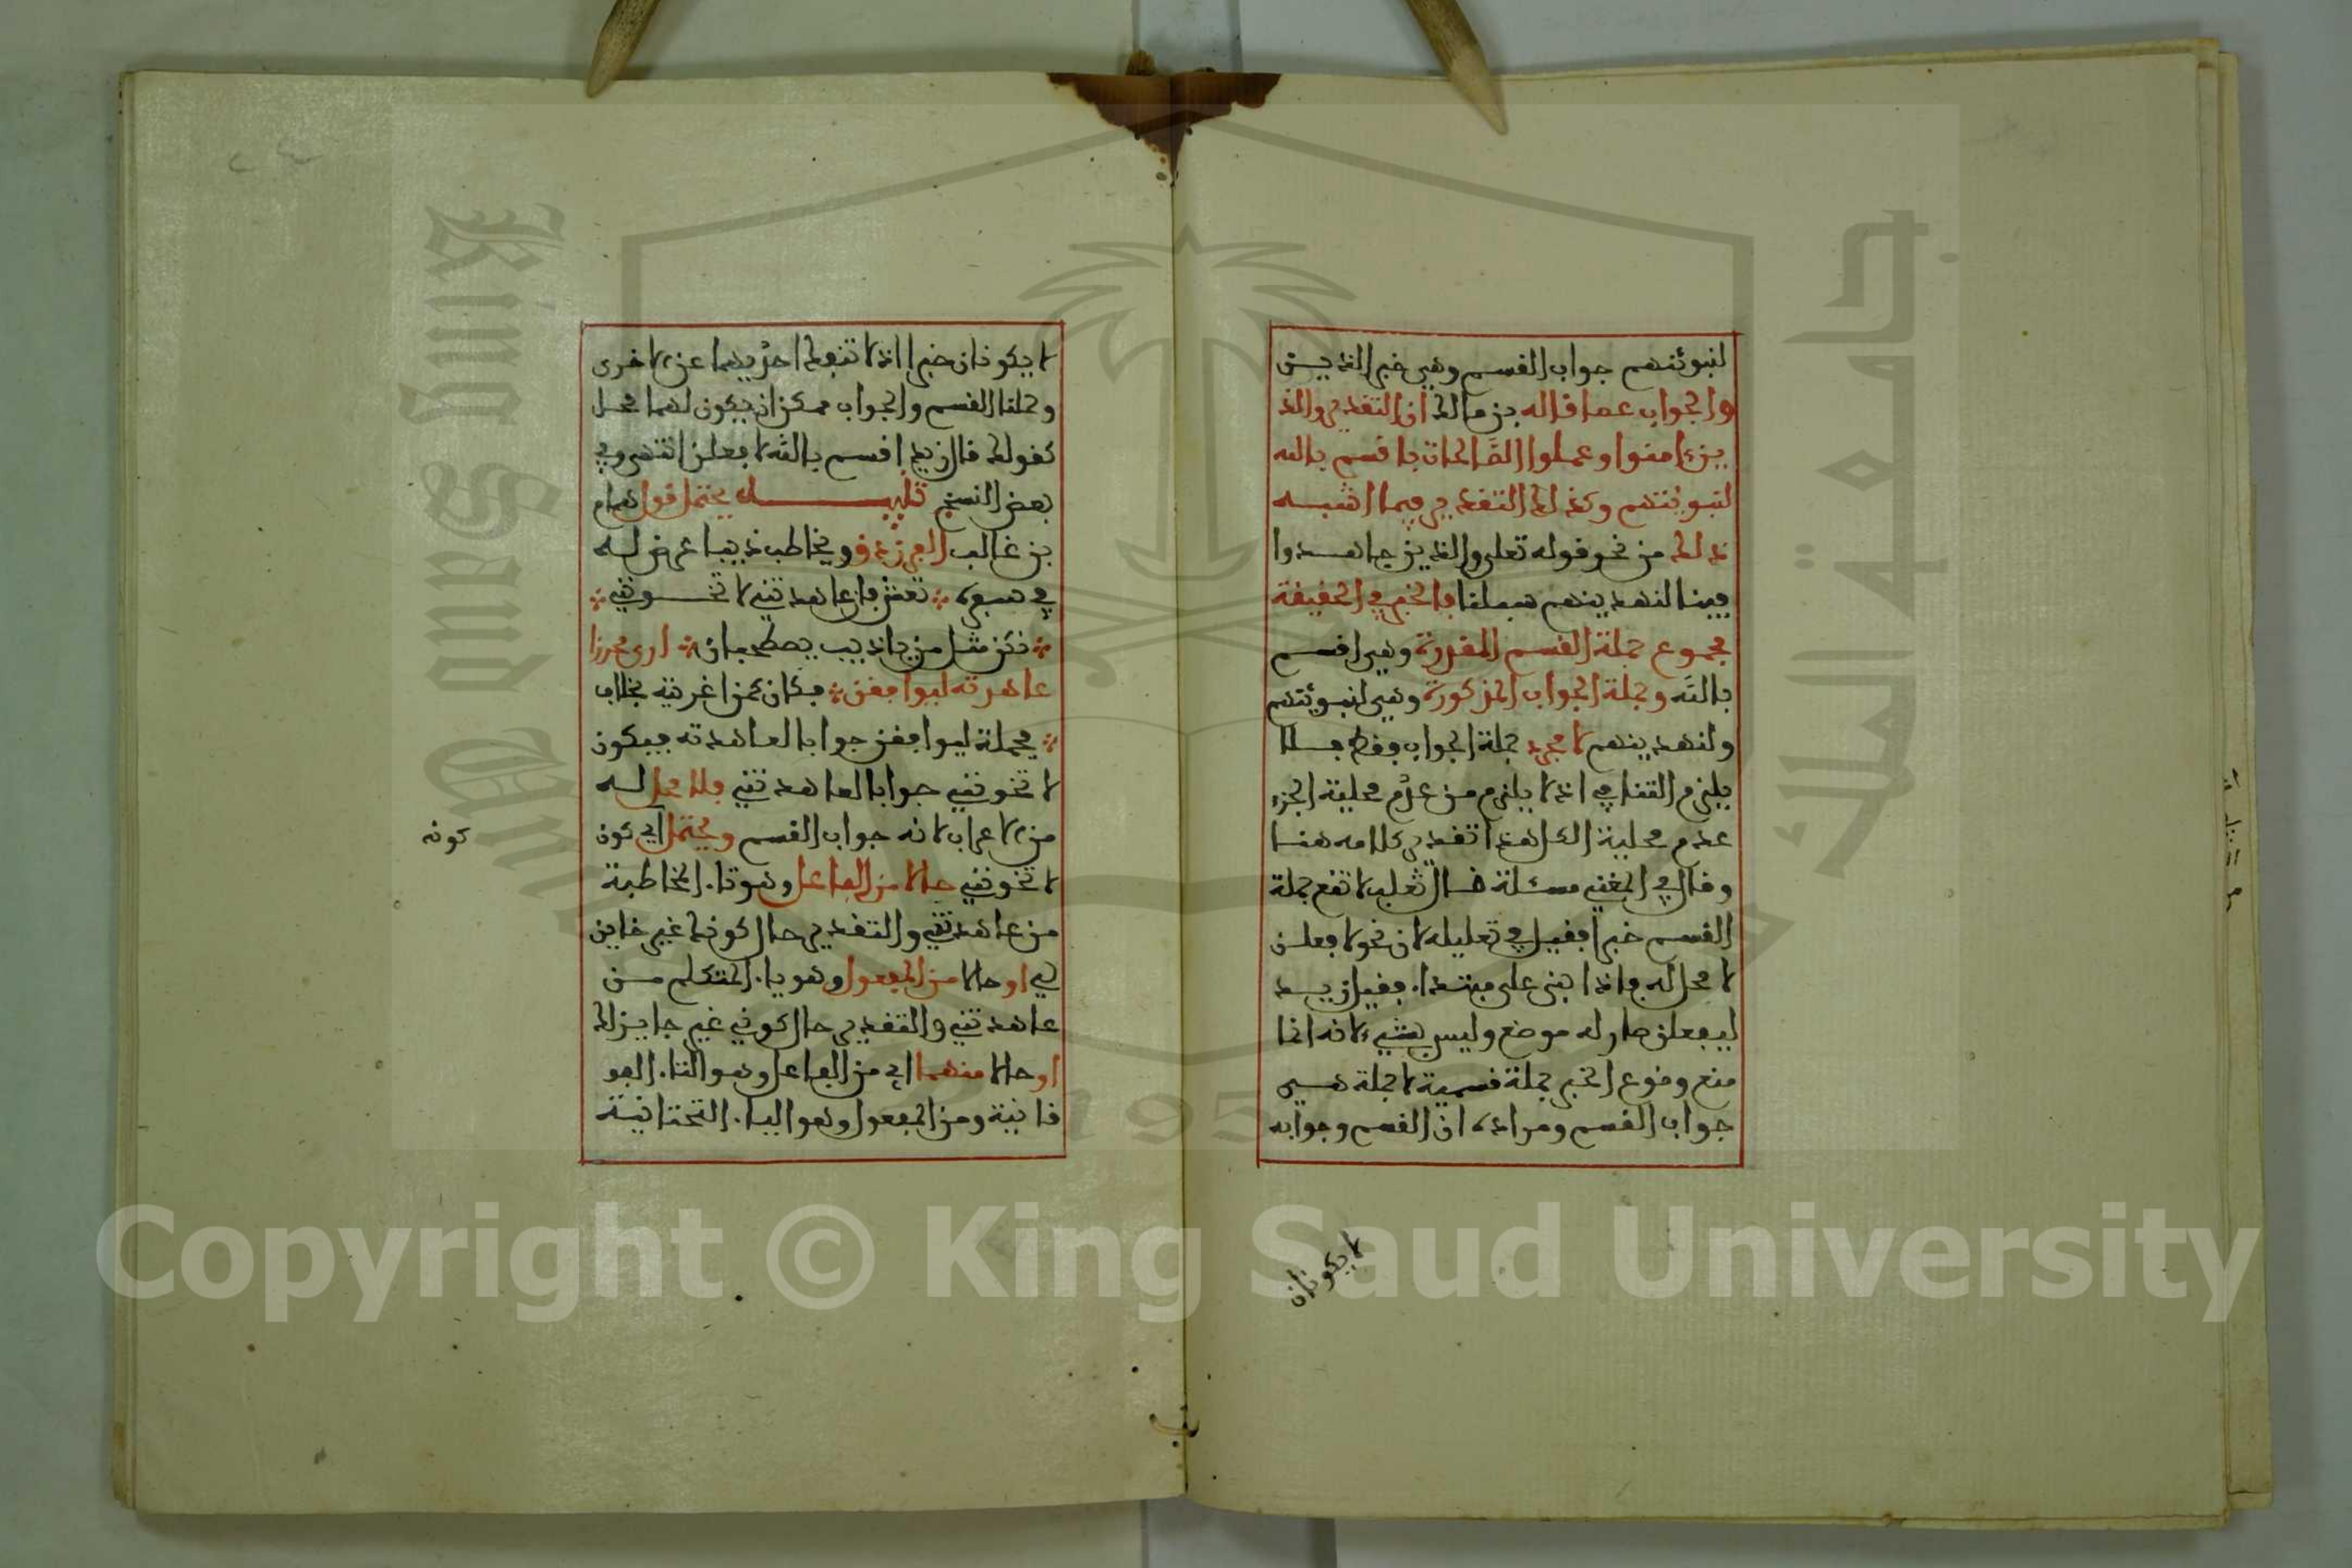 لنبوئنهم جواب القسم وهي خبر الذيـن
والجواب عما قاله بن مالك ان التقدير والذ
ين ءامنوا وعملوا الصَّالحات باقسم بالله
لنبوئنهم وكذلك التقدير فيما اشبـه
ذلك من نحو قوله تعلى والذين جاهـدوا
فينا لنهدينهم سبلنا فالخبر في الحقيقة
مجموع جملة القسم المقدرة وهي اقسم
بالله وجملة الجواب المذكورة وهي لنبوئنهم
ولنهدينهم لا مجرد جملة الجواب فقط فـلا
يلزم التنافي اذ لا يلزم من عدم محلية الجزء
عدم محلية الكل هذا تقدير كلامه هنـا
وقال في المغني مسئلة قال ثعلب لا تقع جملة
القسم خبرا فقيل في تعليله لان نحو لافعلـن
لا محل له فاذا بني على مبتدا. فقيل زيـد
ليفعلن صار له موضع وليس بشيء لانه انما
منع وقوع الخبر جملة قسمية لا جملة هـي
جواب القسم ومراده ان القسم وجوابه
لا يكونان
لا يكونان خبرا اذ لا تنفك احديهما عن الاخرى
وجملتا القسم والجواب ممكن ان يكون لهما محـل
كقولك قال زيد اقسم بالله لافعلن انتهى وفي
بعض النسخ تنبيـــه يحتمل قول همام
بن غالب الفرزدق ويخاطب ذيبا عرض لـه
في سفره ∴ تعش فان عاهدتني لا تخـونني ∴
∴ نكن مثل من يا ذيب يصطحبان ∴ ارى محرزا
عاهدته ليوافقن ∴ فكان كمن اغريته بخلاف
∴ فجملة ليوافقن جوابا لعاهدته فيكون
لا تخونني جوابا لعاهدتني فلا محل لـه
من الاعراب لانه جواب القسم ويحتمل اي كون
كونه
لا تخونني حالا من الفاعل وهو تا. المخاطبة
من عاهدتني والتقدير حال كونك غير خاين
لي او حالا من المفعول وهو يا. المتكلم مـن
عاهدتني والتقدير حال كوني غير جايز لك
او حالا منهما اي من الفاعل وهو التا. الفو
قانية ومن المفعول وهو اليا. التحتانيـة
Copyright © King Saud University